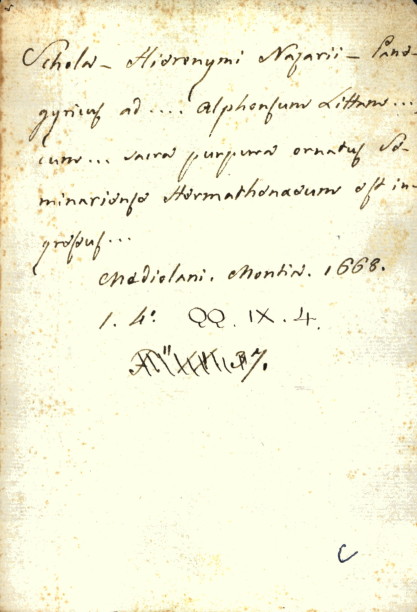 Schola - Hieronymi Nazarii - Pane-
gyricus ad .... Alphonsum Littam ...
cum ... sacra purpura ornatus Se-
minariense Hermathenaeum est in-
gressus ...
Mediolani. Montiae. 1668.
1. 4.º QQ. IX. 4.
37.
C